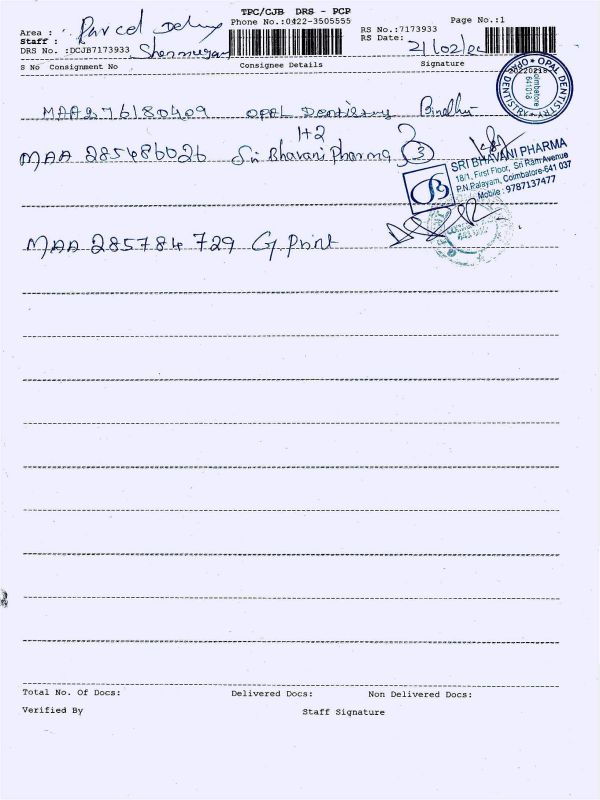 TPC/CJB DRS - PCP
Phone No.:0422-3505555
Page No.:1
Area : Parcel
Staff : Shanmugam
DRS No. :DCJB7173933
RS No.:7173933
RS Date: 21/02/20
S No Consignment No Consignee Details Signature
MAA276180409 OPAL Dentistry Bindhu
OPAL DENTISTRY
Coimbatore
641018
1+2
MAA 285486026 Sri Bhavani Pharma 3
SRI BHAVANI PHARMA
18/1, First Floor, Sri Ram Avenue
P.N.Palayam, Coimbatore-641 037
Mobile : 9787137477
MAA 285784 729 G. Print
Total No. Of Docs: Delivered Docs: Non Delivered Docs:
Verified By Staff Signature